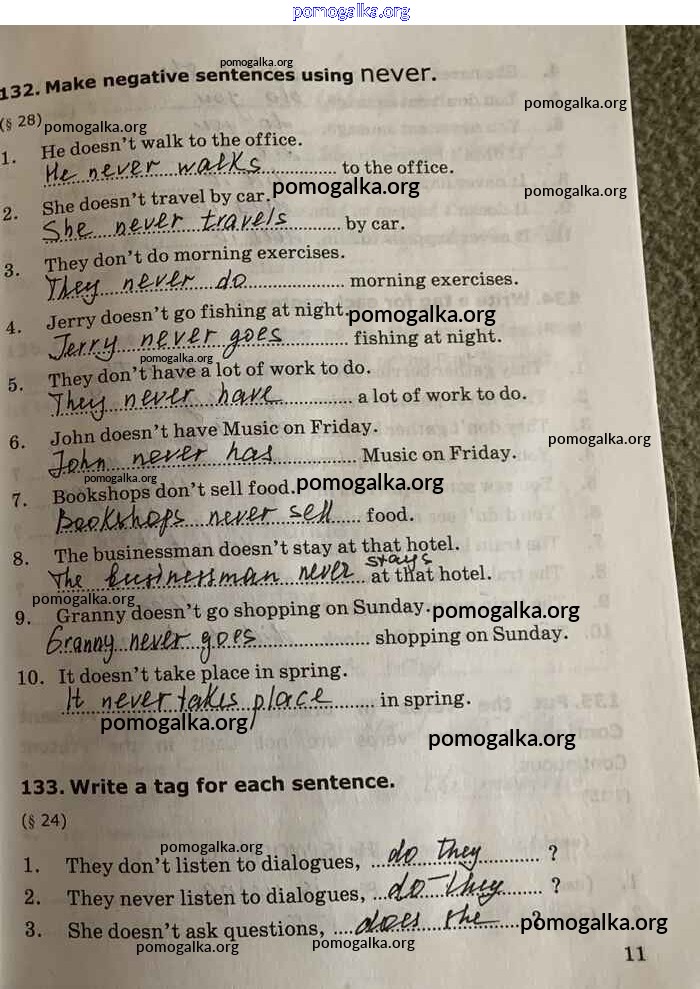 pomogalka.org
pomogalka.org
132. Make negative sentences using never.
(§ 28) pomogalka.org
pomogalka.org
1. He doesn't walk to the office.
He never walks to the office.
pomogalka.org
pomogalka.org
2. She doesn't travel by car.
She never travels by car.
3. They don't do morning exercises.
They never do morning exercises.
4. Jerry doesn't go fishing at night. pomogalka.org
Jerry never goes fishing at night.
pomogalka.org
5. They don't have a lot of work to do.
They never have a lot of work to do.
6. John doesn't have Music on Friday.
pomogalka.org
John never has Music on Friday.
pomogalka.org
7. Bookshops don't sell food. pomogalka.org
Bookshops never sell food.
8. The businessman doesn't stay at that hotel.
stays
The businessman never at that hotel.
pomogalka.org
9. Granny doesn't go shopping on Sunday. pomogalka.org
Granny never goes shopping on Sunday.
10. It doesn't take place in spring.
It never takes place in spring.
pomogalka.org
pomogalka.org
133. Write a tag for each sentence.
(§ 24)
pomogalka.org
1. They don't listen to dialogues, do they ?
2. They never listen to dialogues, do they ?
3. She doesn't ask questions, does she ?
pomogalka.org
pomogalka.org
pomogalka.org
11